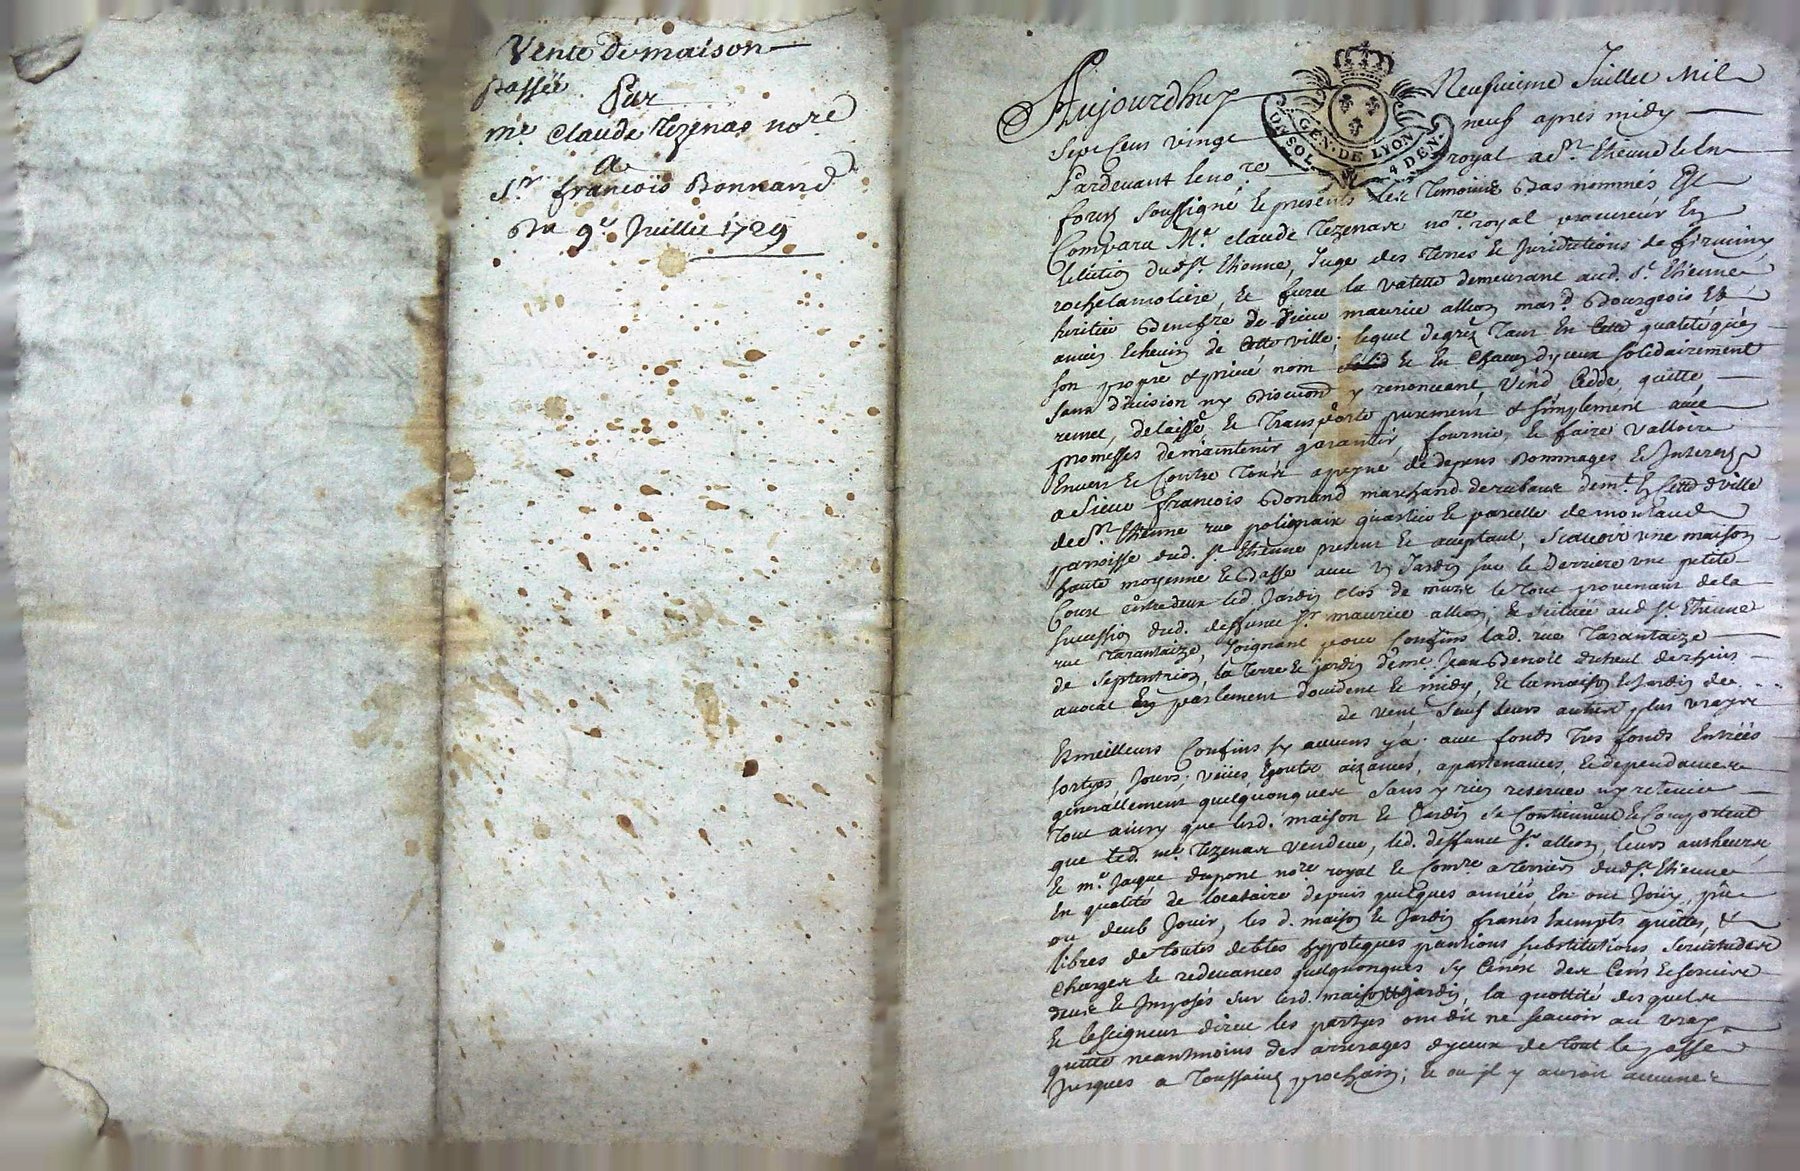 Vente de maison
passée
Par
me Claude Tezenas nore
a
Sr françois Bonnand
Du 9e Juillet 1729
Aujourdhuy Neufvieme Juillet Mil
Sept Cens vingt neuf apres midy
GEN. DE LYON
UN SOL 4 DEN.
Pardevant le nore royal a St. Etienne
forez soussigné & presents les temoins bas nommés Est
Comparu Me. Claude Tezenas nore royal procureur En
lelection dud St. Etienne, Juge des terres & Juridictions de firminy
rochelamoliere, & la valette demeurant aud. St. Etienne
heritier de sieur maurice alleon mard. Bourgeois &
ancien Echevin de Cette ville, lequel de gré tant En Cette qualité quen
son propre & privé nom & En Chacun dyceux solidairement
sans division ny discution y renonceant Vend Cedde, quitte
remet, delaisse & transporte purement & simplement avec
promesses de maintenir garantir, fournir, & faire valloire
Envers & Contre tous a peyne de depens dommages & Interets
a Sieur françois Bonand marchand de rubans demt. En Cette ville
de St. Etienne rue polignaix quartier & parcelle de montaud
parroisse dud. St. Etienne present & aceptant, Scavoir une maison
haute moyenne & basse avec un Jardin sur le derriere une petite
Cour Entre deux led. Jardin clos de murs le tout provenant de la
succession dud. deffunct Sr. maurice alleon, & scituée aud St. Etienne
rue tarantaize, Joignant pour Confins lad. rue tarantaize
de septentrion, la terre & jardin de me. Jean Benoit
avocat En parlement doccident & midy, & la maison & Jardin de
de vent sauf leurs autres plus vrays
& meilleurs Confins sy aucuns y a. avec fonds tres fonds Entrées
sortyes, Jours, veües Egouts aizances, apartenances, & dependances
generallement quelquonques sans y rien reserver ny retenir
tout ainsy que lesd. maison & Jardin se Contiennent & Comportent
que led. me. Tezenas vendeur, led. deffunct Sr. alleon, leurs autheurs,
& me. Jaque dupont nore royal & Comre a terriers dud St. Etienne
En qualité de locataire depuis quelques années En ont Joüy, pû
ou deub Jouir, les d. maison & Jardin francs Exempts quittes, &
libres de toutes debtes hypoteques pantions substitutions servitudes
Charges & redevances quelquonques sy Cenest des Cens & servis
deus & Imposés sur lesd. maison & jardin, la quottité desquels
& le seigneur direct les partyes ont dit ne scavoir au vray
quitte neantmoins des arrerages dyceux de tout le passé
Jusques a toussaint prochain; & ou jl y auroit aucune